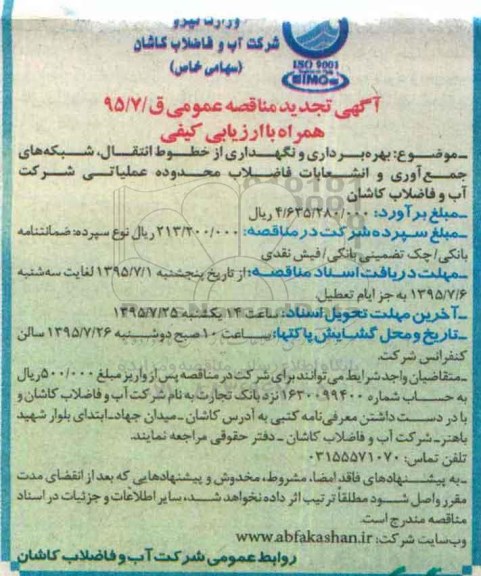 وزارت نیرو
شرکت آب و فاضلاب کاشان
(سهامی خاص)
ISO 9001
آگهی تجدید مناقصه عمومی ق/۹۵/۷
همراه با ارزیابی کیفی
ـ موضوع: بهره‌برداری و نگهداری از خطوط انتقال، شبکه‌های
جمع‌آوری و انشعابات فاضلاب محدوده عملیاتی شرکت
آب و فاضلاب کاشان
ـ مبلغ برآورد: ۴/۶۳۵/۲۸۰/۰۰۰ ریال
ـ مبلغ سپرده شرکت در مناقصه: ۲۱۳/۲۰۰/۰۰۰ ریال نوع سپرده: ضمانتنامه
بانکی/ چک تضمینی بانکی/ فیش نقدی
ـ مهلت دریافت اسناد مناقصه: از تاریخ پنجشنبه ۱۳۹۵/۷/۱ لغایت سه‌شنبه
۱۳۹۵/۷/۶ به جز ایام تعطیل
ـ آخرین مهلت تحویل اسناد: ساعت ۱۴ یکشنبه ۱۳۹۵/۷/۲۵
ـ تاریخ و محل گشایش پاکتها: ساعت ۱۰ صبح دوشنبه ۱۳۹۵/۷/۲۶ سالن
کنفرانس شرکت.
ـ متقاضیان واجد شرایط می‌توانند برای شرکت در مناقصه پس از واریز مبلغ ۵۰۰/۰۰۰ ریال
به حساب شماره ۱۶۳۰۰۹۹۴۰۰ نزد بانک تجارت به نام شرکت آب و فاضلاب کاشان و
با در دست داشتن معرفی‌نامه کتبی به آدرس کاشان ـ میدان جهاد ـ ابتدای بلوار شهید
باهنر ـ شرکت آب و فاضلاب کاشان ـ دفتر حقوقی مراجعه نمایند.
تلفن تماس: ۰۳۱۵۵۵۷۱۰۷۰
ـ به پیشنهادهای فاقد امضا، مشروط، مخدوش و پیشنهادهایی که بعد از انقضای مدت
مقرر واصل شود مطلقاً ترتیب اثر داده نخواهد شد، سایر اطلاعات و جزئیات در اسناد
مناقصه مندرج است.
وب‌سایت شرکت: www.abfakashan.ir
روابط عمومی شرکت آب و فاضلاب کاشان